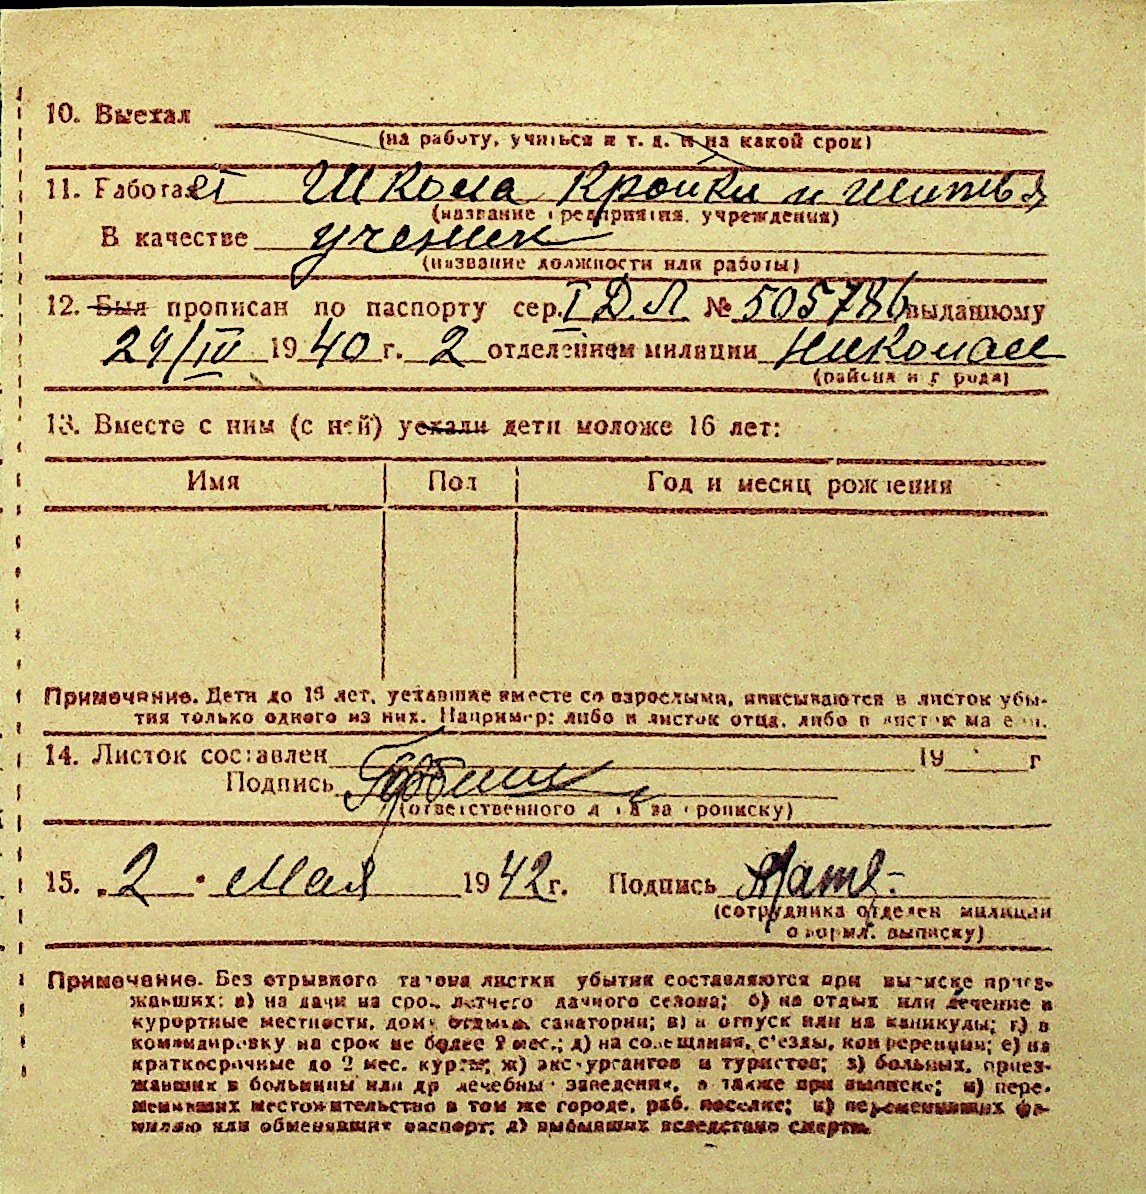 10. Выехал
(на работу, учиться и т. д. и на какой срок)
11. Работает Школа Кройки и шитья
(название предприятия, учреждения)
В качестве ученик
(название должности или работы)
12. Был прописан по паспорту сер. I ДЛ № 505786 выданному
29/IV 1940 г. 2 отделением милиции Николаев
(района и города)
13. Вместе с ним (с ней) уехали дети моложе 16 лет:
Имя Пол Год и месяц рождения
Примечание. Дети до 16 лет, уехавшие вместе со взрослыми, вписываются в листок убы-
тия только одного из них. Например: либо в листок отца, либо в листок матери.
14. Листок составлен 19 г
Подпись
(ответственного за прописку)
15. 2 мая 1942 г. Подпись
(сотрудника отделен милиции
оформл. выписку)
Примечание. Без отрывного талона листки убытия составляются при выписке приез-
жавших: а) на дачи на срок летнего дачного сезона; б) на отдых или лечение в
курортные местности, дома отдыха, санатории; в) в отпуск или на каникулы; г) в
командировку на срок не более 2 мес.; д) на совещания, съезды, конференции; е) на
краткосрочные до 2 мес. курсы; ж) экскурсантов и туристов; з) больных, приез-
жавших в больницы или др лечебны заведения, а также при выписке; и) пере-
менивших местожительство в том же городе, раб. поселке; к) переменивших фа-
милию или обменявших паспорт; л) выбывших вследствие смерти.